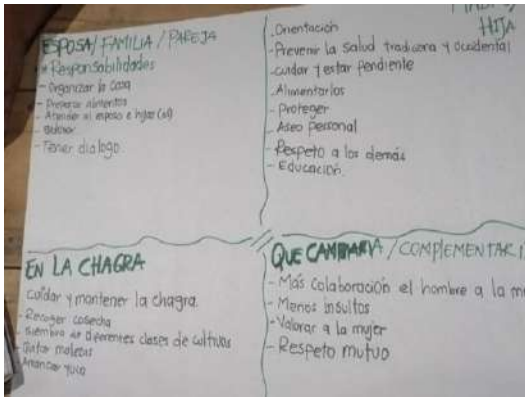 ESPOSA/ FAMILIA / PAREJA
* Responsabilidades
- Organizar la casa
- Preparar alimentos
- Atender al esposo e hijos (as)
- Tener dialogo.
HIJA
. Orientación
- Prevenir la salud
- cuidar y estar pendiente
- Alimentarlos
- Proteger
- Aseo personal
- Respeto a los demás
- Educación.
EN LA CHAGRA
cuidar y mantener la chagra.
- Recoger cosecha
- siembra de diferentes clases de cultivos
- Quitar maleza
- Arrancar yuca
QUE CAMBIARIA / COMPLEMENTARI
- Más colaboración el hombre a la m
- Menos insultos
- Valorar a la mujer
- Respeto mutuo